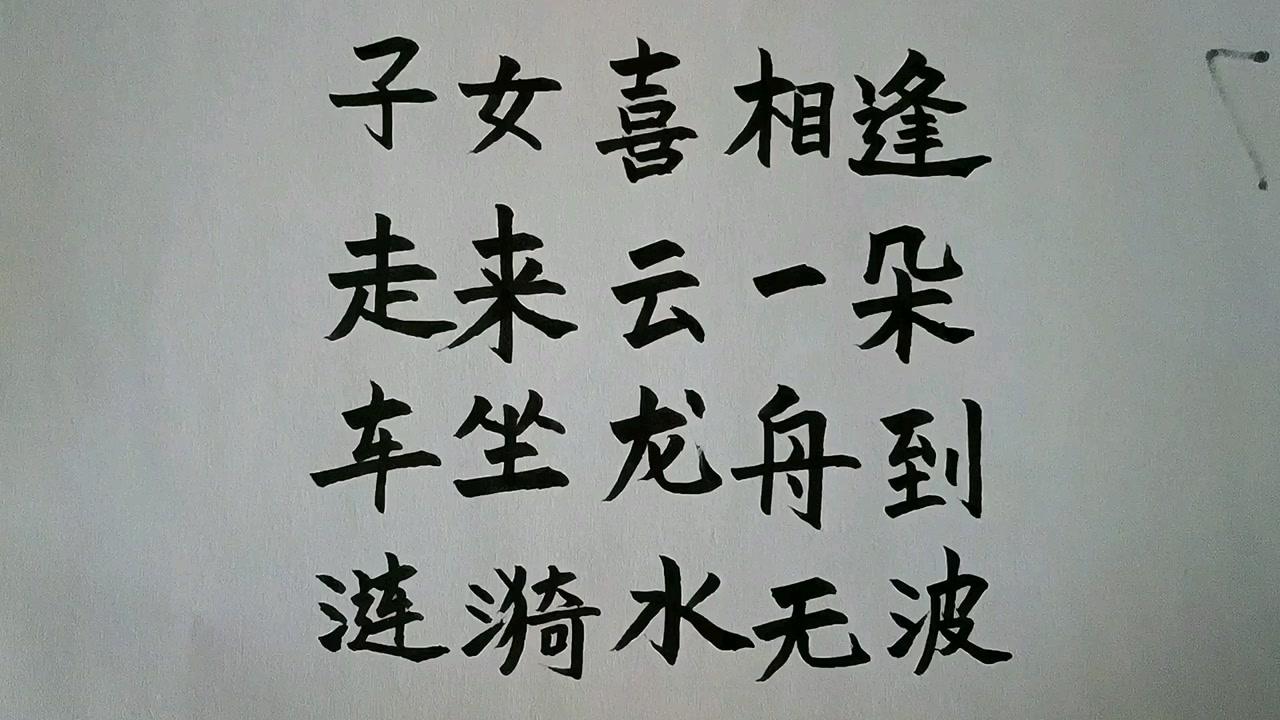 子女喜相逢
走来云一朵
车坐龙舟到
涟漪水无波